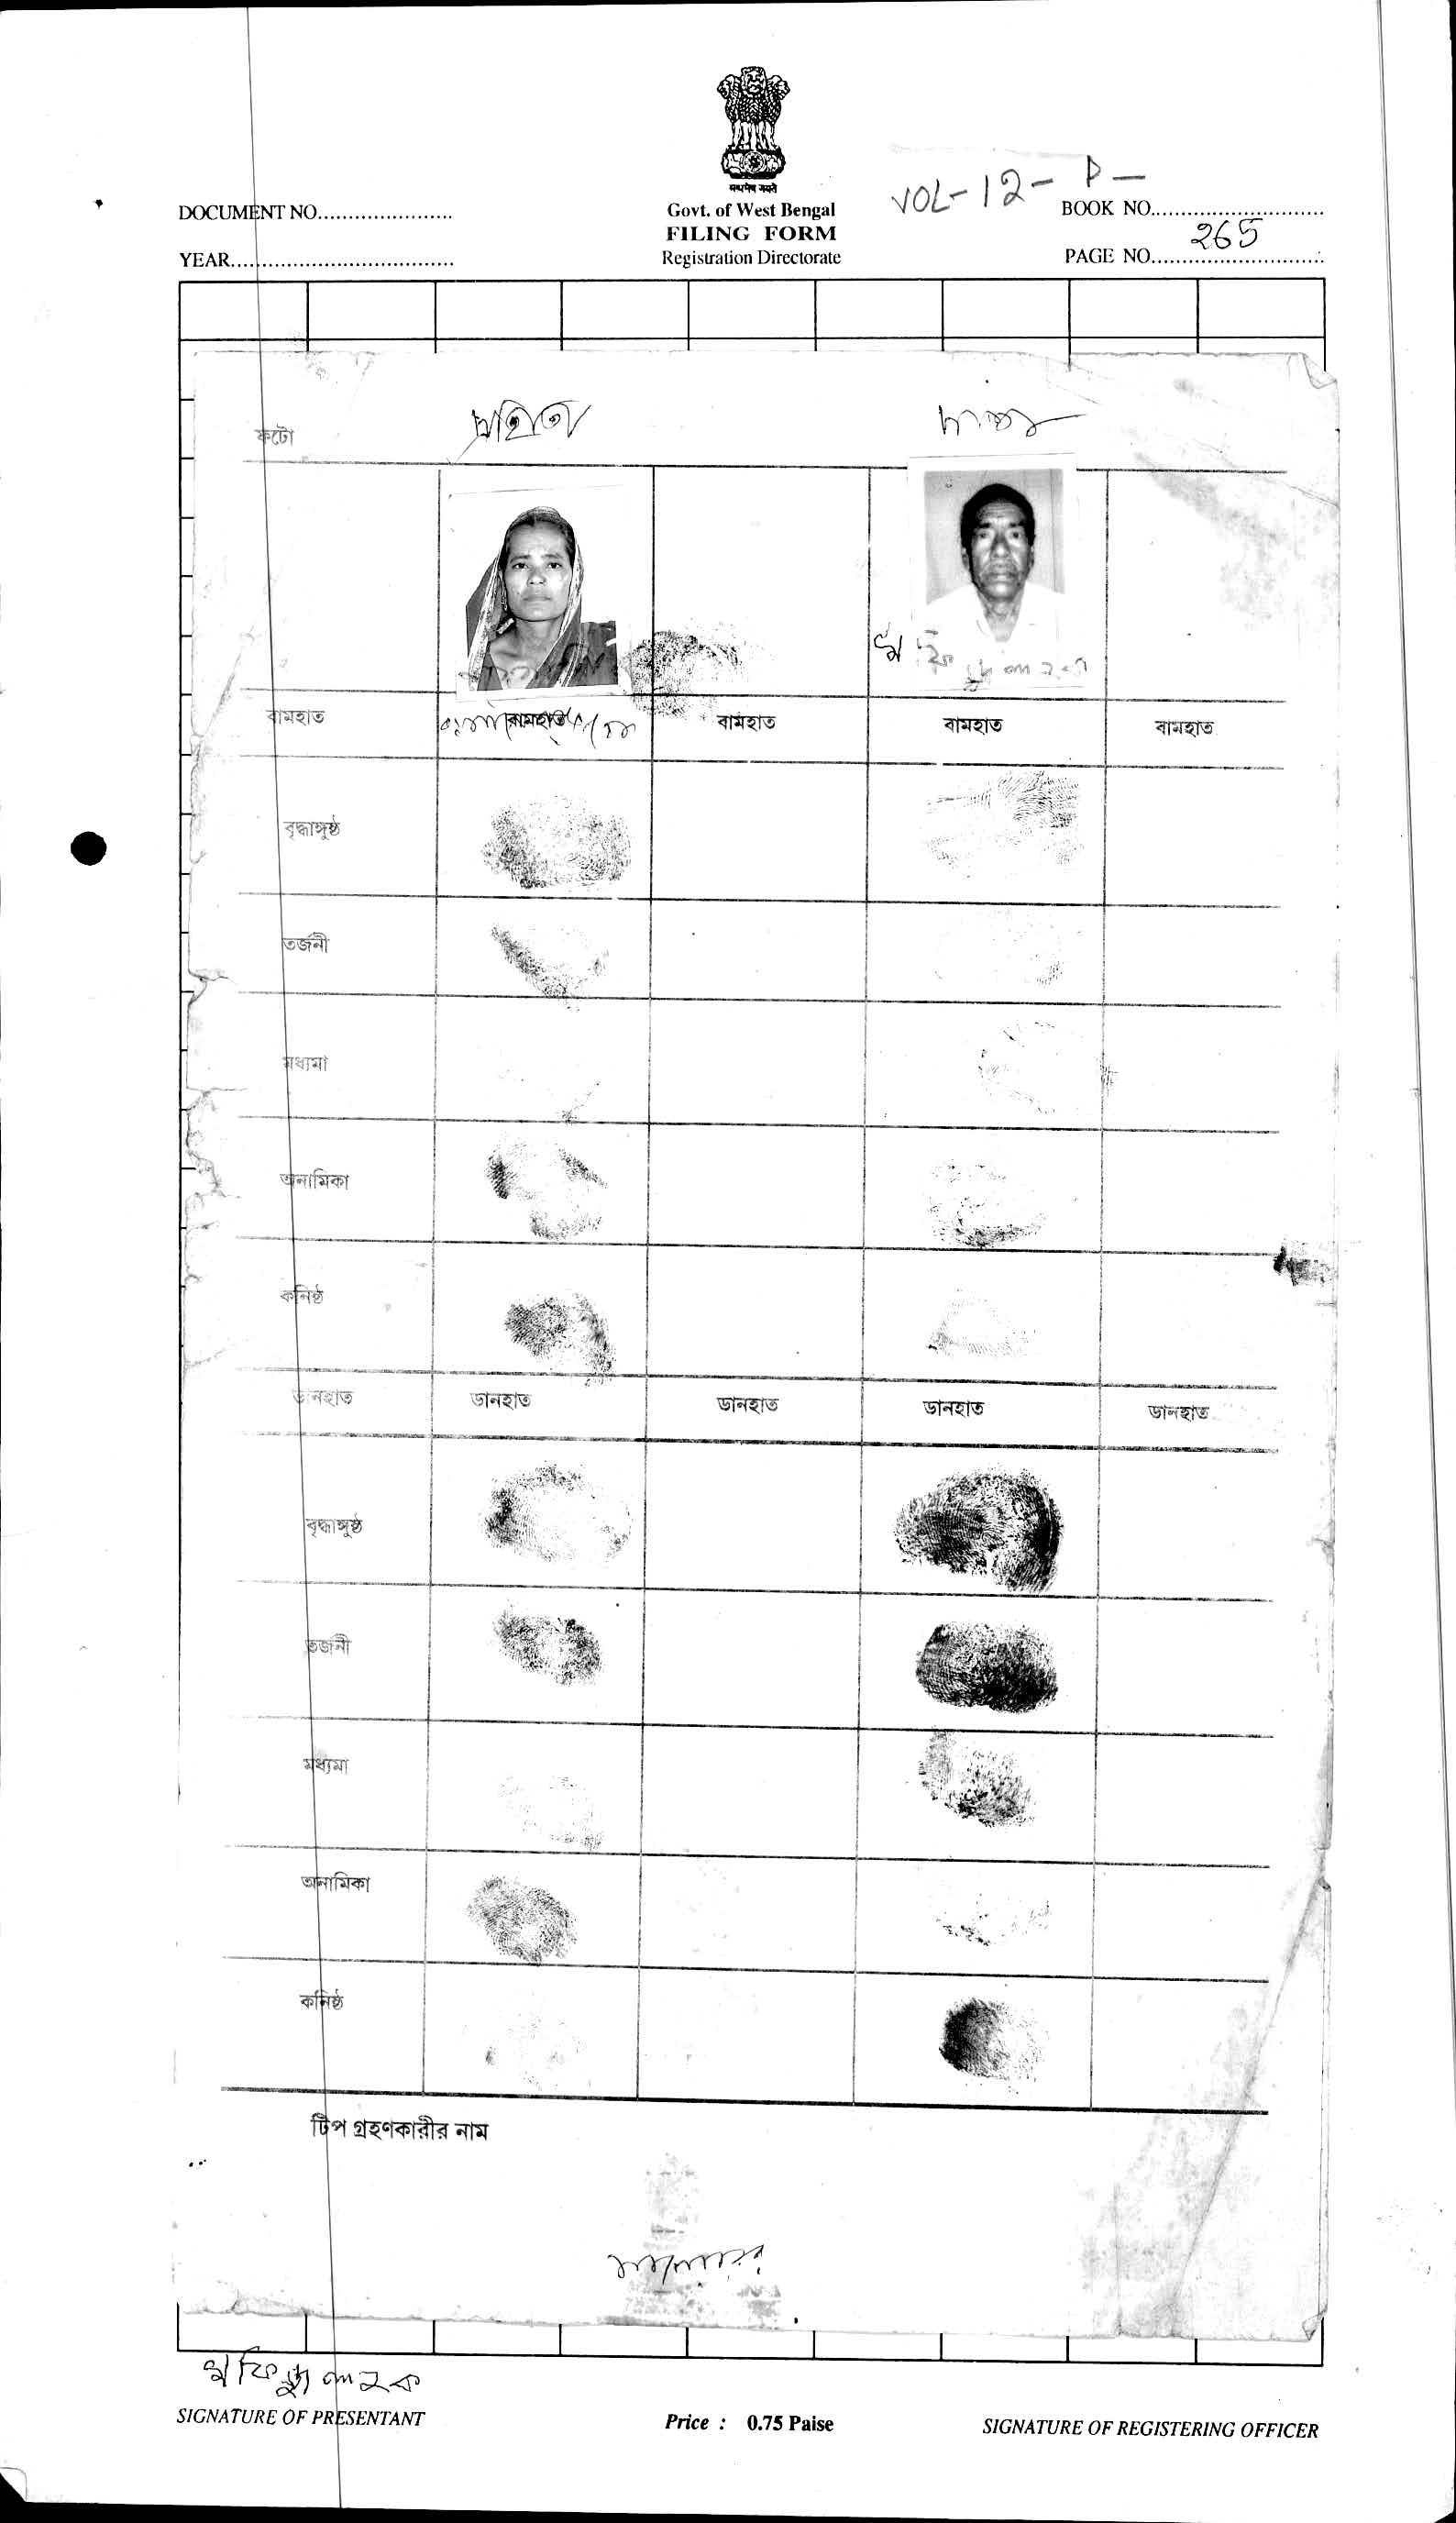 सत्यमेव जयते
VOL-12- P-
DOCUMENT NO......................
Govt. of West Bengal
BOOK NO............................
YEAR....................................
FILING FORM
265
Registration Directorate
PAGE NO............................
গ্রহিতা
দাতা
ফটো
বামহাত বামহাত বামহাত বামহাত বামহাত
বৃদ্ধাঙ্গুষ্ঠ
তর্জনী
মধ্যমা
অনামিকা
কনিষ্ঠ
ডানহাত ডানহাত ডানহাত ডানহাত ডানহাত
বৃদ্ধাঙ্গুষ্ঠ
তর্জনী
মধ্যমা
অনামিকা
কনিষ্ঠ
টিপ গ্রহণকারীর নাম
SIGNATURE OF PRESENTANT
Price : 0.75 Paise
SIGNATURE OF REGISTERING OFFICER